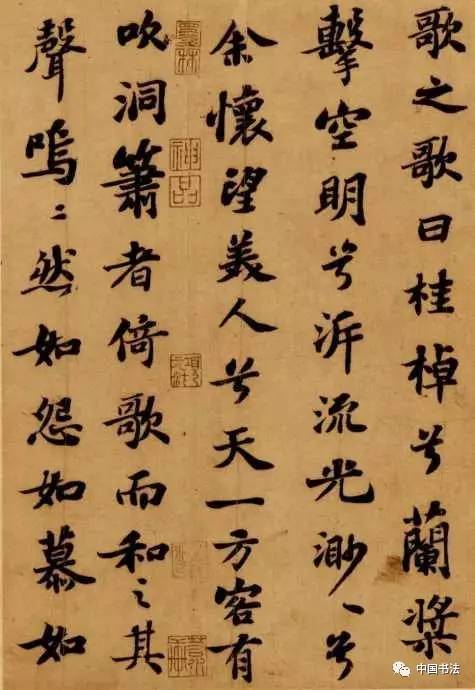 歌之歌曰桂棹兮蘭槳
擊空明兮泝流光渺〻兮
余懷望美人兮天一方客有
吹洞簫者倚歌而和之其
聲嗚〻然如怨如慕如
墨林
神品
中国书法